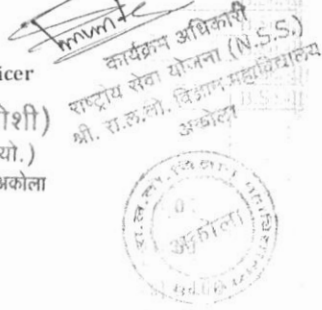 icer
कार्यक्रम अधिकारी
राष्ट्रीय सेवा योजना (N.S.S.)
श्री. रा.ल.तो. विज्ञान महाविद्यालय
अकोला
ोशी)
यो.)
अकोला
अकोला